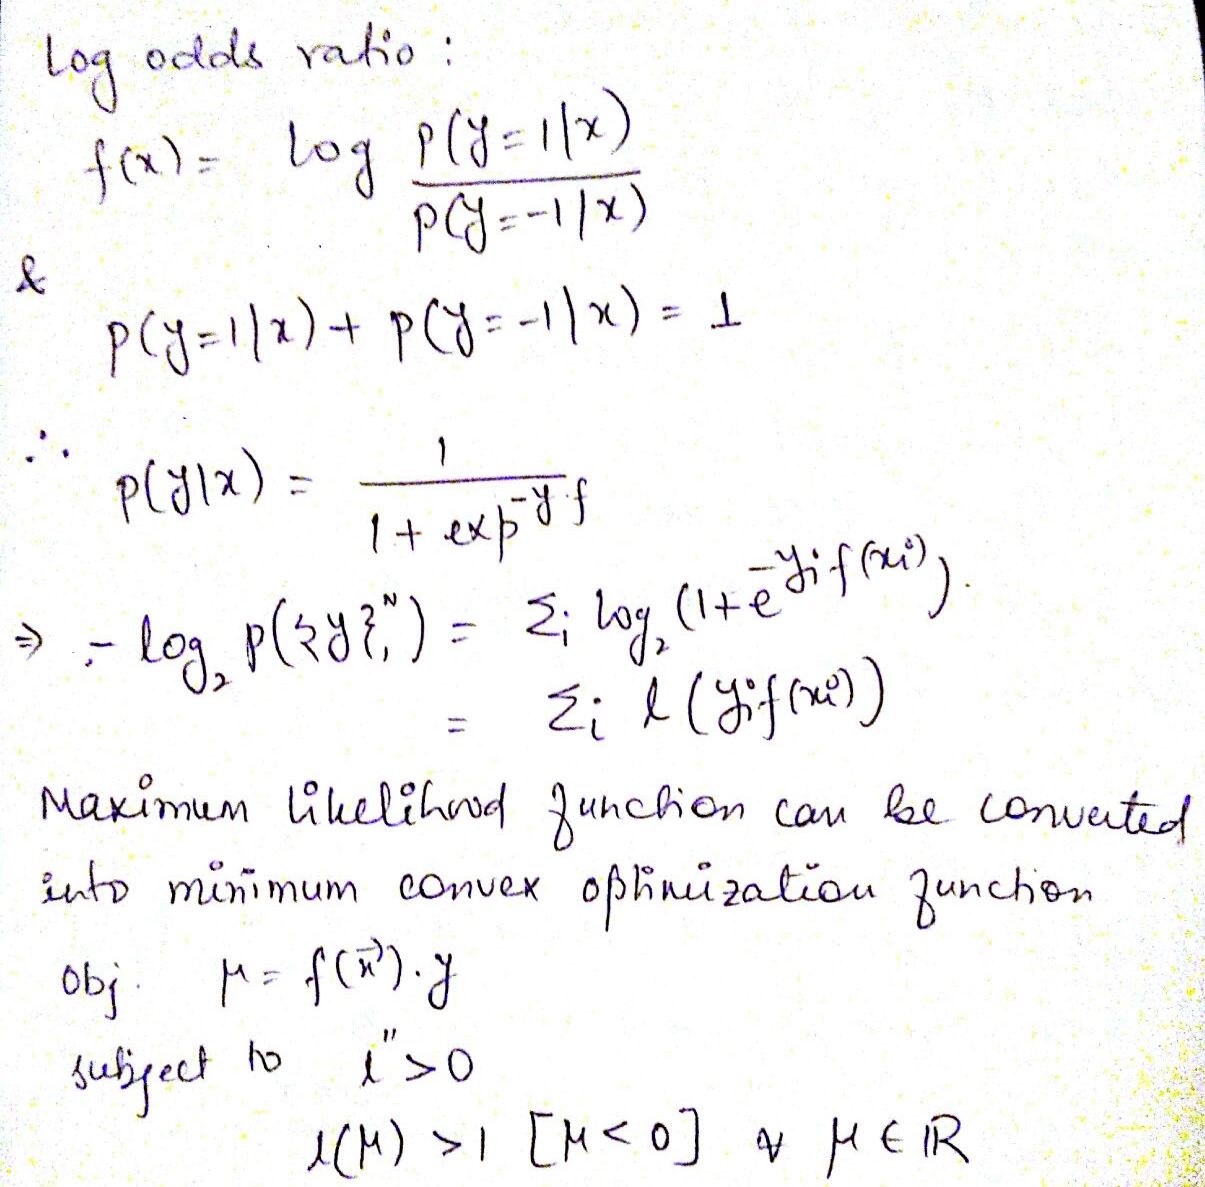 Log odds ratio :
f(x) = log P(y=1|x) / P(y=-1|x)
&
P(y=1|x) + P(y=-1|x) = 1
∴ P(y|x) = 1 / 1 + exp^-y.f
⇒ - log₂ P({y}₁ᴺ) = Σi log₂ (1+e^-yi f(xi)).
= Σi l (yi f(xi))
Maximum likelihood function can be converted
into minimum convex optimization function
obj. μ = f(x⃗).y
subject to l" > 0
l(μ) > 1 [μ < 0] ∀ μ ∈ ℝ